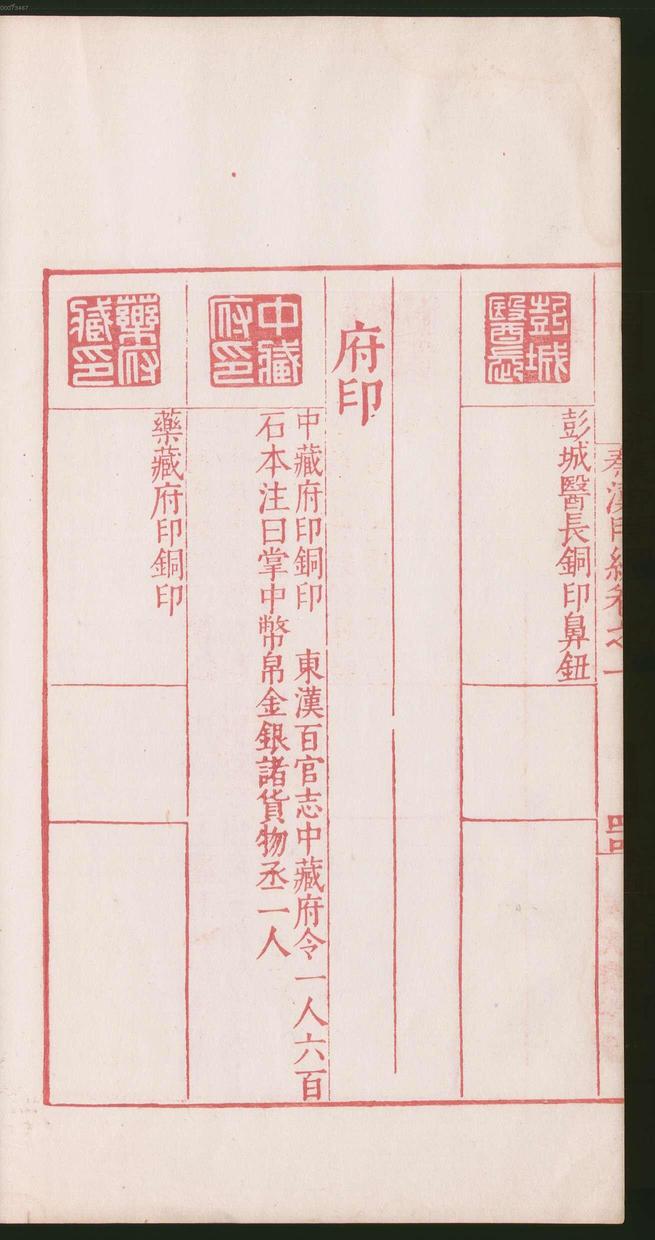 秦漢印統卷之一
彭城
醫長
彭城醫長銅印鼻鈕
府印
中藏
府印
中藏府印銅印 東漢百官志中藏府令一人六百
石本注曰掌中幣帛金銀諸貨物丞一人
藥府
藏印
藥藏府印銅印
00073467